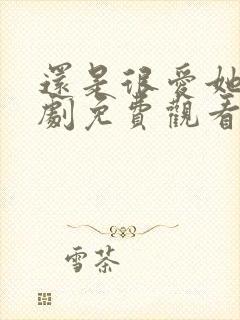 還是很愛她
劇免費觀看
雪茶